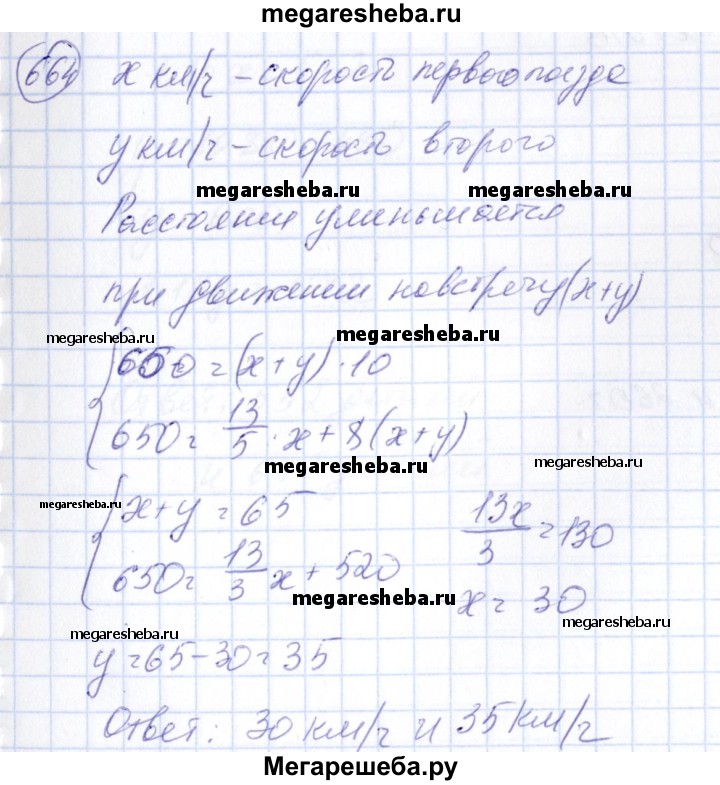 megaresheba.ru
664 x км/ч – скорость первого поезда
y км/ч – скорость второго
megaresheba.ru megaresheba.ru
Расстояние уменьшается
при движении навстречу (x+y)
megaresheba.ru megaresheba.ru
650 = (x+y)·10
650 = 13/5 · x + 8(x+y)
megaresheba.ru megaresheba.ru
megaresheba.ru
x+y = 65 13x/3 = 130
650 = 13/3 x + 520
megaresheba.ru x = 30
megaresheba.ru
y = 65-30 = 35
megaresheba.ru
Ответ: 30 км/ч и 35 км/ч
Мегарешеба.ру